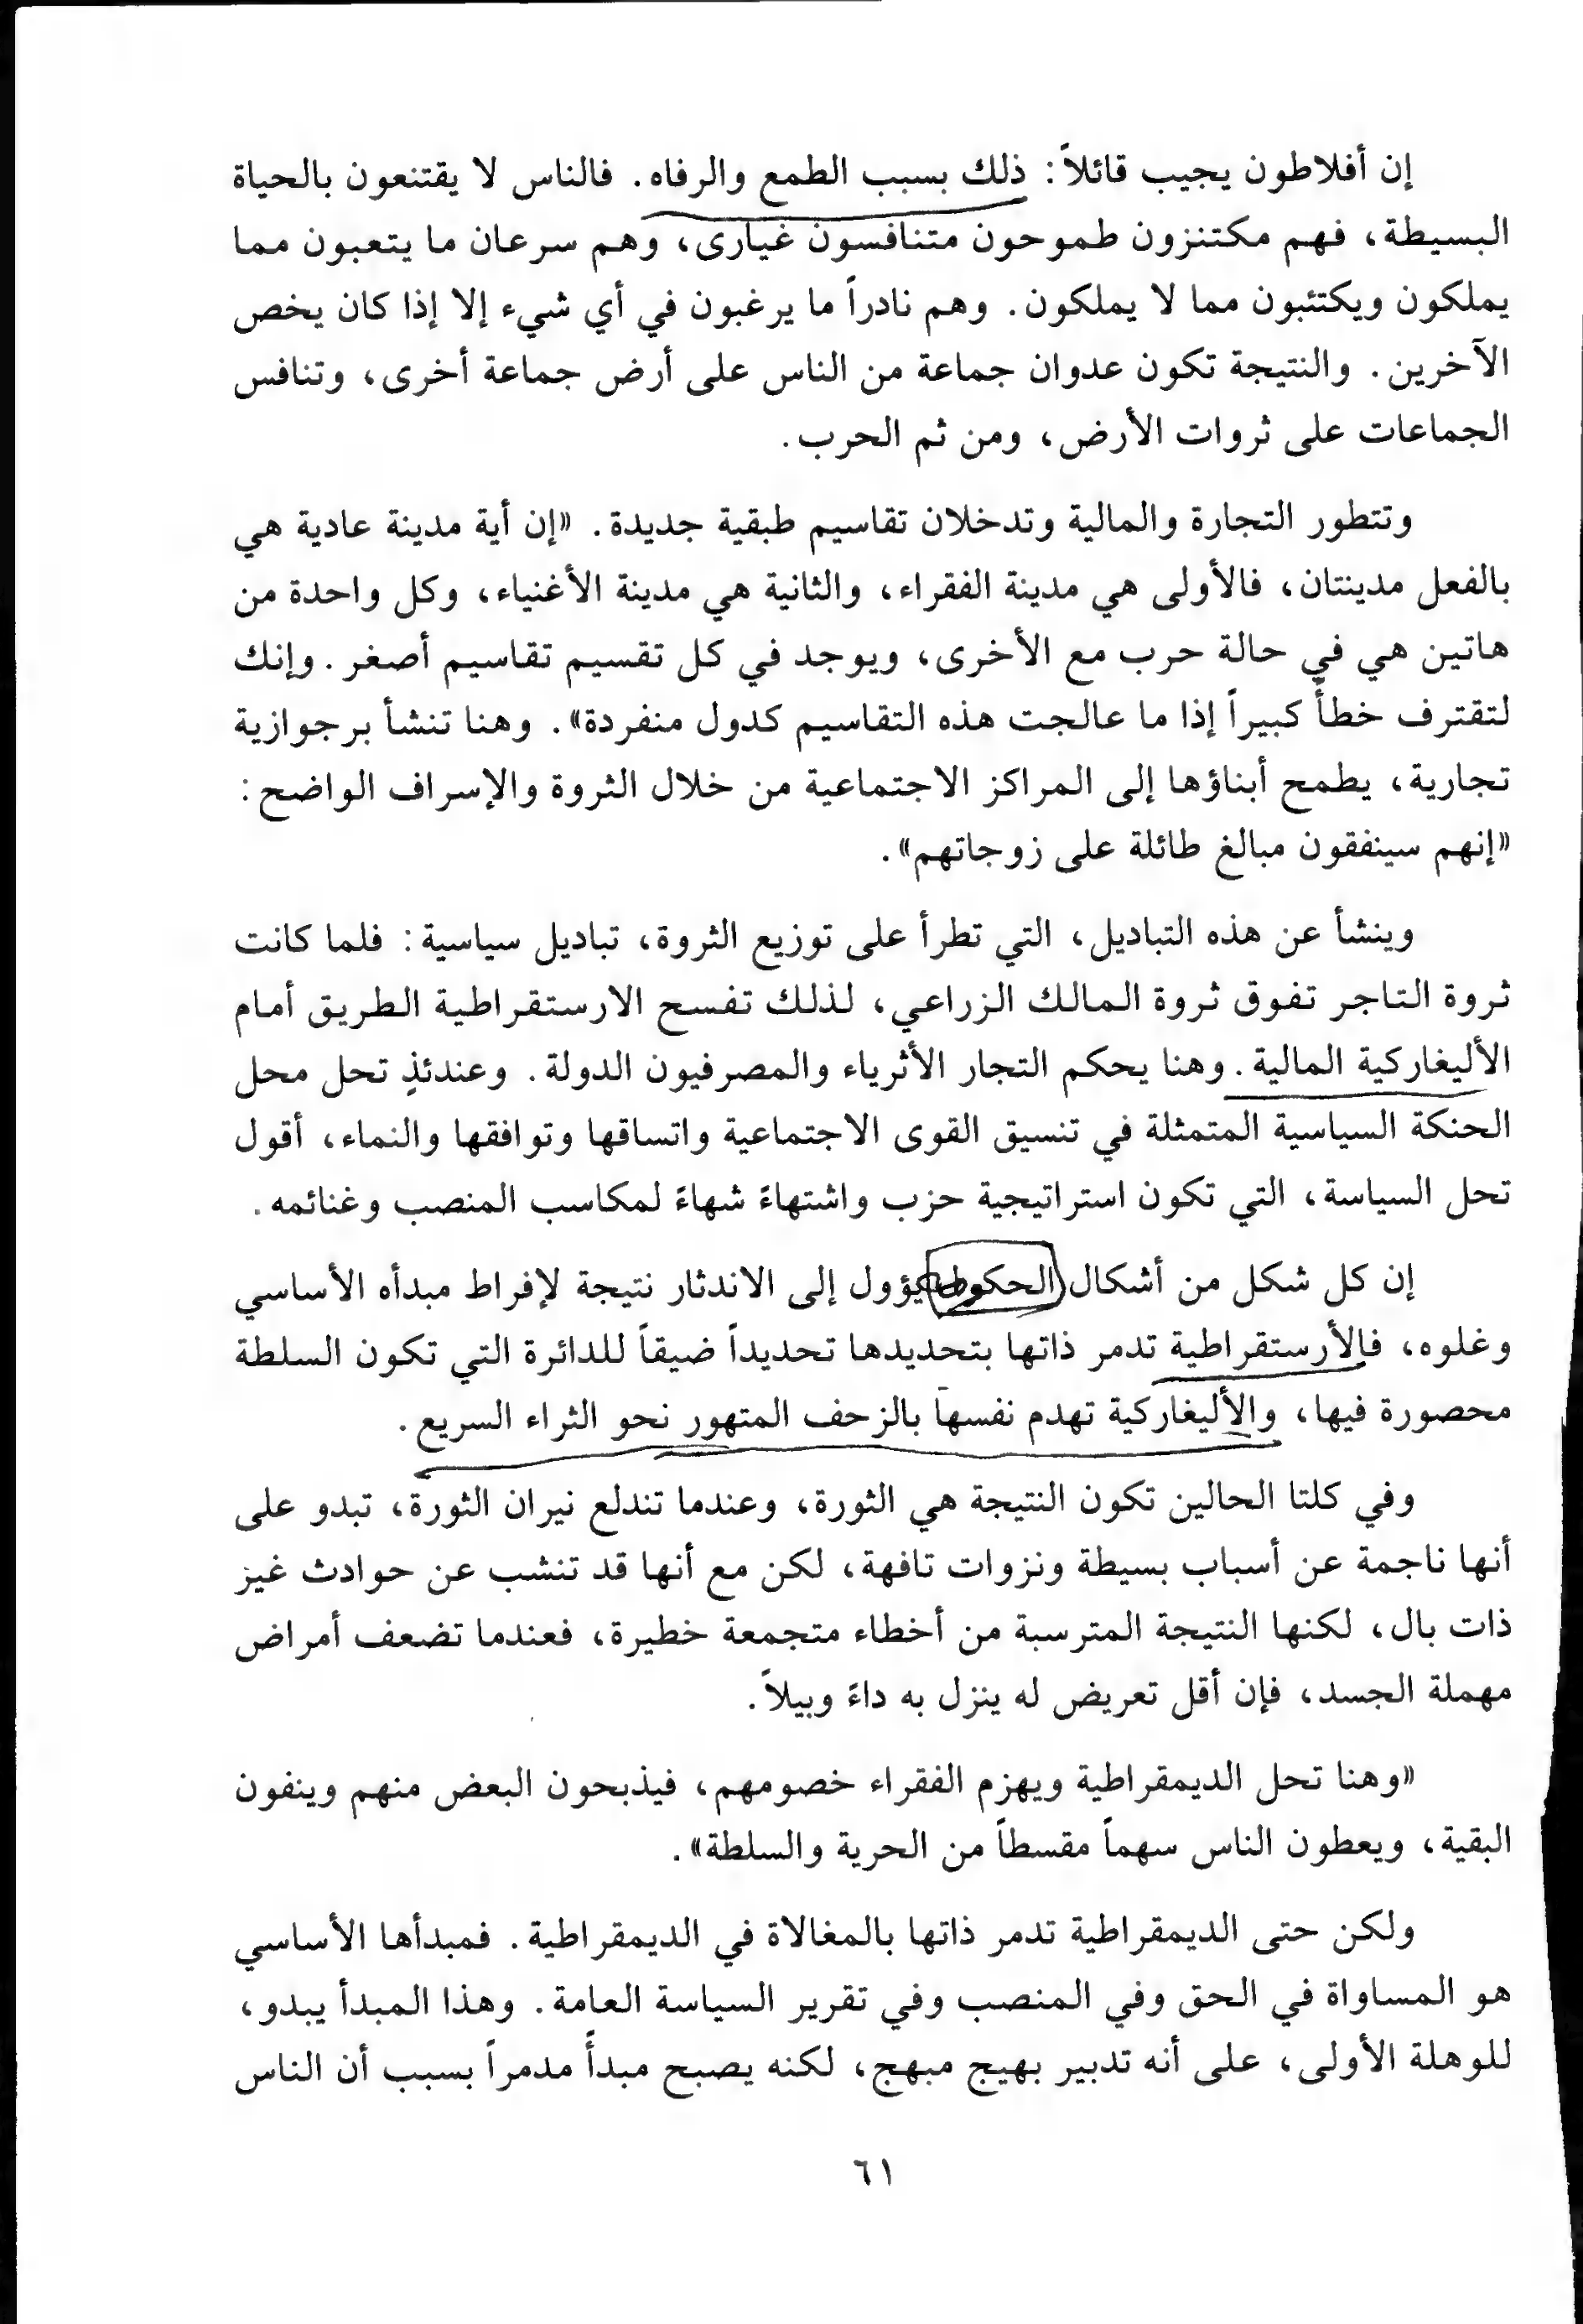 إن أفلاطون يجيب قائلاً: ذلك بسبب الطمع والرفاه. فالناس لا يقتنعون بالحياة
البسيطة، فهم مكتنزون طموحون متنافسون غيارى، وهم سرعان ما يتعبون مما
يملكون ويكتئبون مما لا يملكون. وهم نادراً ما يرغبون في أي شيء إلا إذا كان يخص
الآخرين. والنتيجة تكون عدوان جماعة من الناس على أرض جماعة أخرى، وتنافس
الجماعات على ثروات الأرض، ومن ثم الحرب.
وتتطور التجارة والمالية وتدخلان تقاسيم طبقية جديدة. «إن أية مدينة عادية هي
بالفعل مدينتان، فالأولى هي مدينة الفقراء، والثانية هي مدينة الأغنياء، وكل واحدة من
هاتين هي في حالة حرب مع الأخرى، ويوجد في كل تقسيم تقاسيم أصغر. وإنك
لتقترف خطأً كبيراً إذا ما عالجت هذه التقاسيم كدول منفردة». وهنا تنشأ برجوازية
تجارية، يطمح أبناؤها إلى المراكز الاجتماعية من خلال الثروة والإسراف الواضح:
«إنهم سينفقون مبالغ طائلة على زوجاتهم».
وينشأ عن هذه التباديل، التي تطرأ على توزيع الثروة، تباديل سياسية: فلما كانت
ثروة التاجر تفوق ثروة المالك الزراعي، لذلك تفسح الارستقراطية الطريق أمام
الأليغاركية المالية. وهنا يحكم التجار الأثرياء والمصرفيون الدولة. وعندئذٍ تحل محل
الحنكة السياسية المتمثلة في تنسيق القوى الاجتماعية واتساقها وتوافقها والنماء، أقول
تحل السياسة، التي تكون استراتيجية حزب واشتهاءً شهاءً لمكاسب المنصب وغنائمه.
إن كل شكل من أشكال يؤول إلى الاندثار نتيجة لإفراط مبدأه الأساسي
وغلوه، فالأرستقراطية تدمر ذاتها بتحديدها تحديداً ضيقاً للدائرة التي تكون السلطة
محصورة فيها، والأليغاركية تهدم نفسها بالزحف المتهور نحو الثراء السريع.
وفي كلتا الحالين تكون النتيجة هي الثورة، وعندما تندلع نيران الثورة، تبدو على
أنها ناجمة عن أسباب بسيطة ونزوات تافهة، لكن مع أنها قد تنشب عن حوادث غيز
ذات بال، لكنها النتيجة المترسبة من أخطاء متجمعة خطيرة، فعندما تضعف أمراض
مهملة الجسد، فإن أقل تعريض له ينزل به داءً وبيلاً.
«وهنا تحل الديمقراطية ويهزم الفقراء خصومهم، فيذبحون البعض منهم وينفون
البقية، ويعطون الناس سهماً مقسطاً من الحرية والسلطة».
ولكن حتى الديمقراطية تدمر ذاتها بالمغالاة في الديمقراطية. فمبدأها الأساسي
هو المساواة في الحق وفي المنصب وفي تقرير السياسة العامة. وهذا المبدأ يبدو،
للوهلة الأولى، على أنه تدبير بهيج مبهج، لكنه يصبح مبدأً مدمراً بسبب أن الناس
٦١